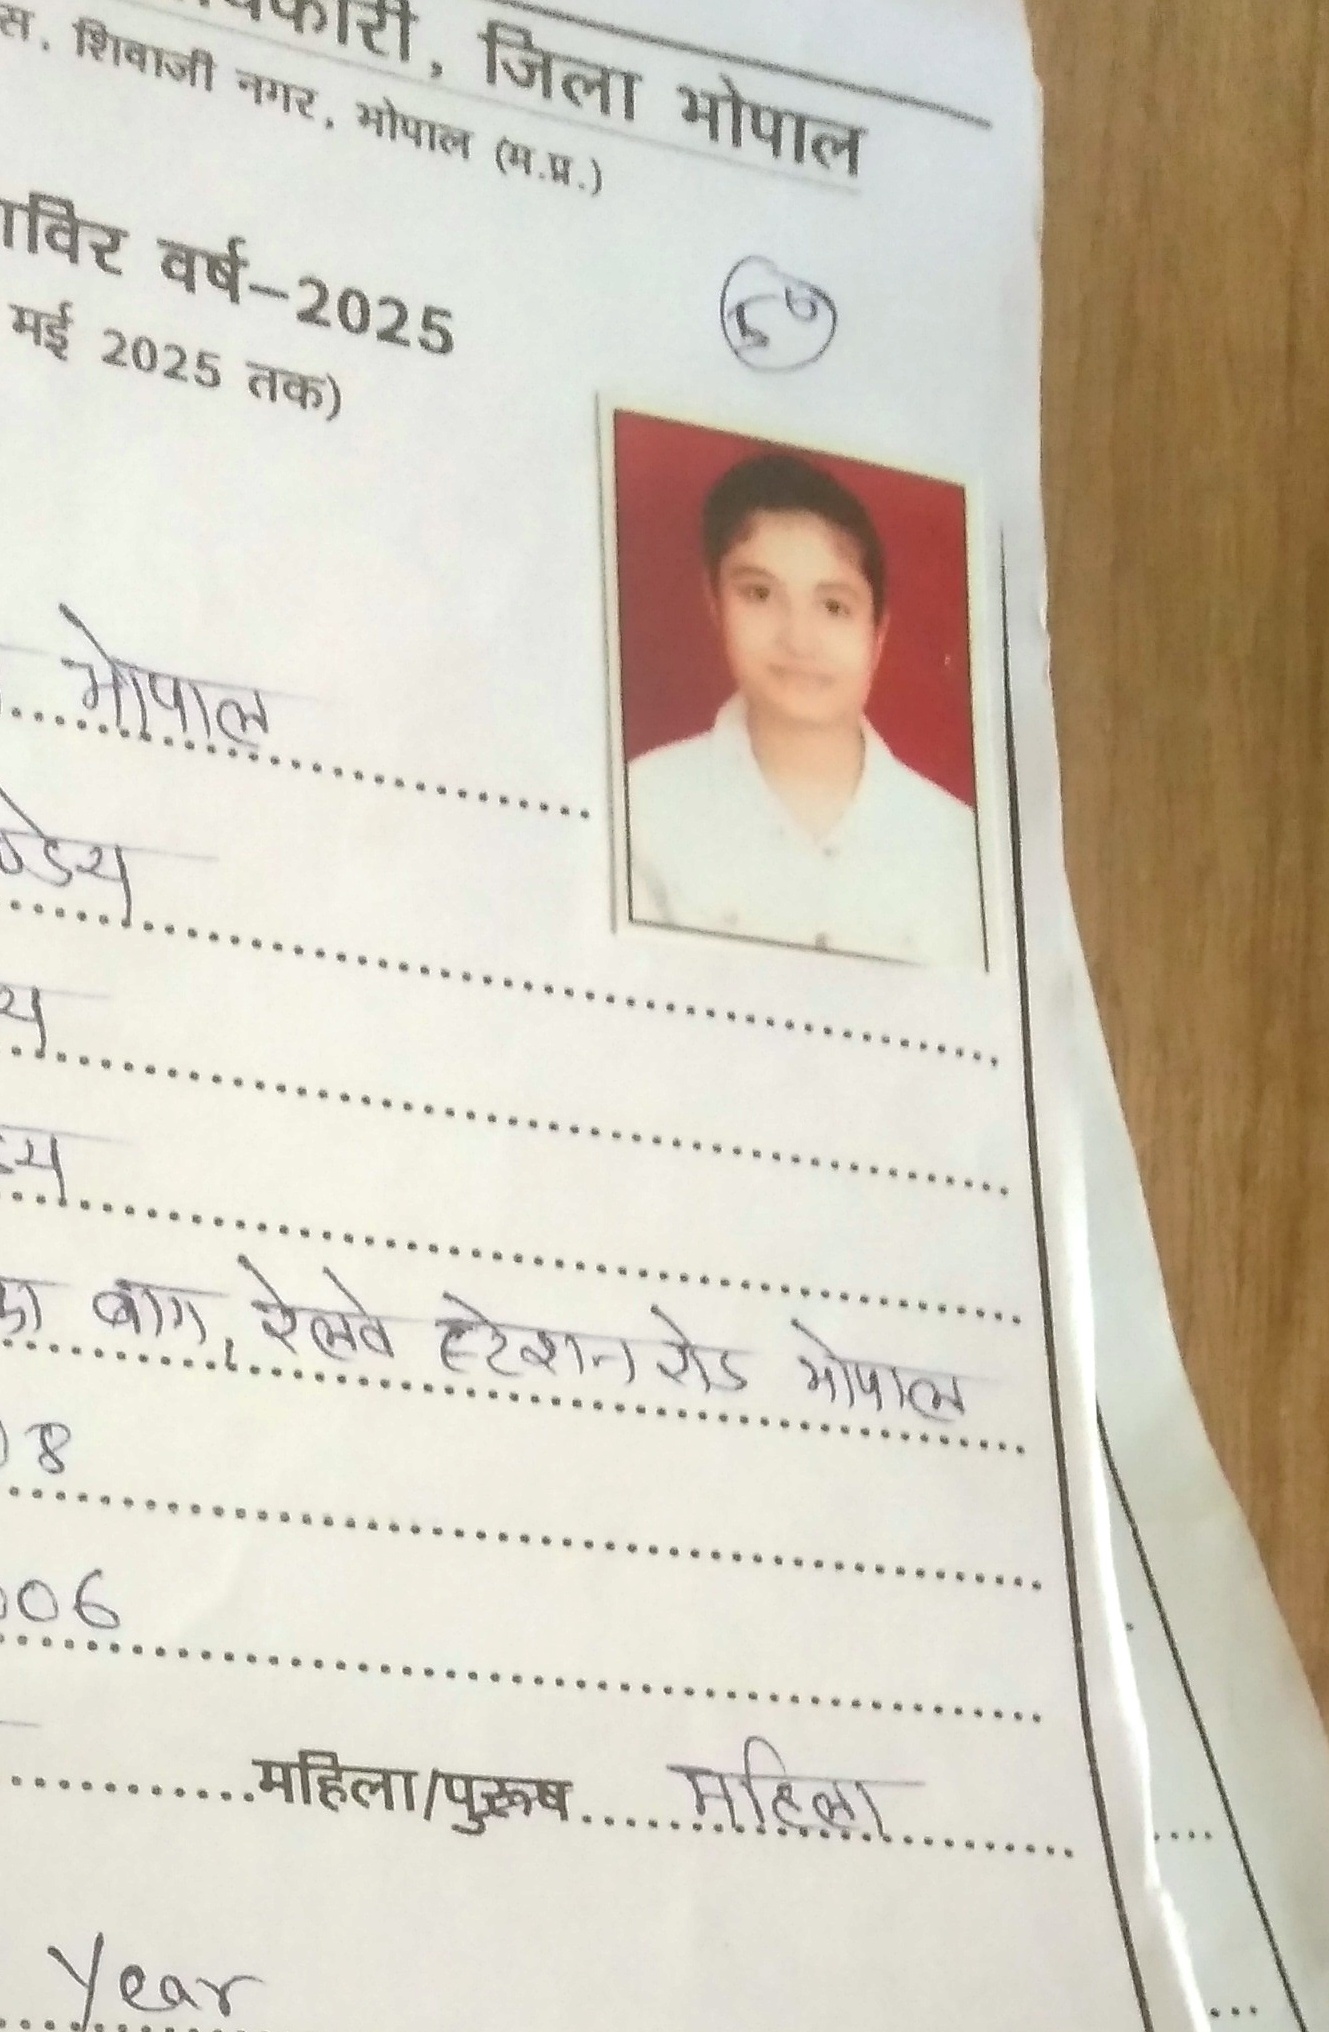 जिला भोपाल
शिवाजी नगर, भोपाल (म.प्र.)
वर्ष–2025
मई 2025 तक)
भोपाल
बाग, रेलवे स्टेशन रोड भोपाल
8
06
महिला/पुरूष महिला
Year